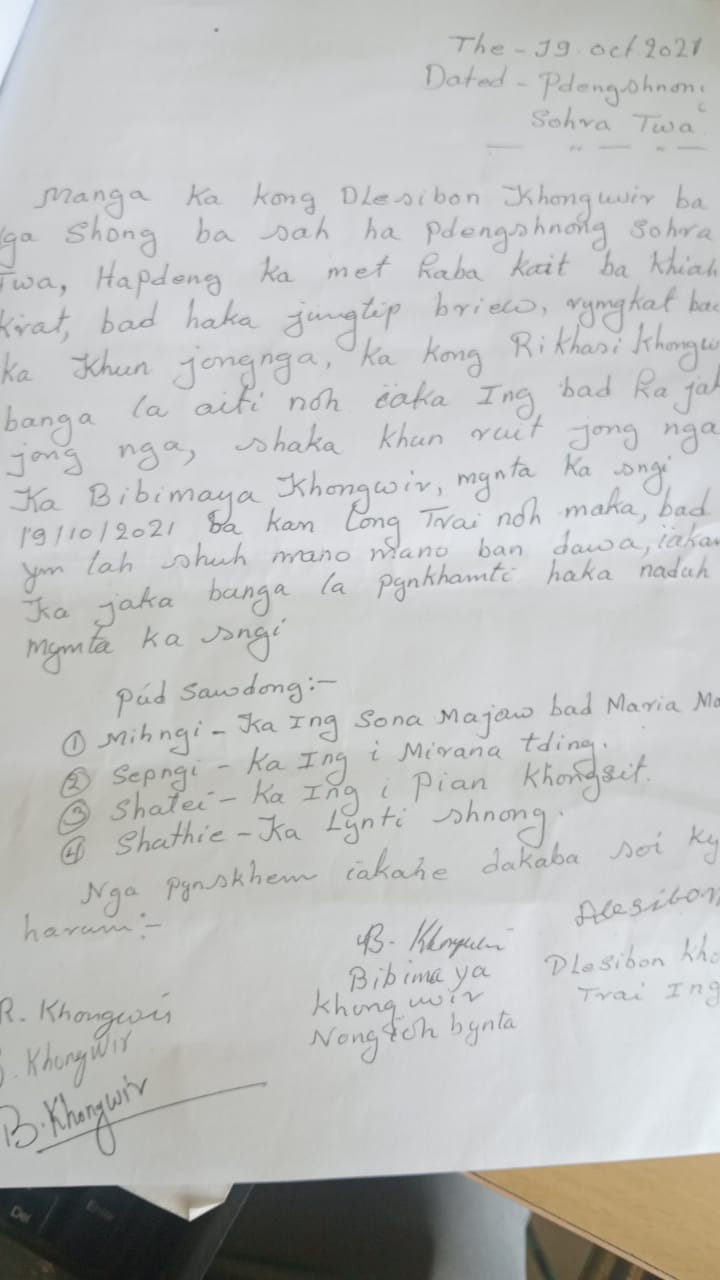 The - 19. oct. 2021
Dated - Pdengshnong
Sohra Twa
Manga ka kong Dlesibon Khongwir ba
nga Shong ba sah ha Pdengshnong Sohra
Twa, Hapdeng ka met kaba kait ba khiah
krat, bad haka jingtip briew, ryngkat bad
ka Khun jongnga, ka kong Rikhasi Khongw
banga la aiti noh ïaka Ing bad ka jak
jong nga, shaka khun ruit jong nga
Ka Bibimaya Khongwir, mynta ka sngi
19/10/2021 ba kan long Trai noh maka, bad
ym lah shuh mano mano ban dawa, ïakan
ka jaka banga la pynkhamti haka naduh
mymta ka sngi
Púd Sawdong:-
① Mihngi - Ka Ing Sona Majaw bad Maria Ma
② Sepngi - Ka Ing i Mirana tding.
③ Shatei - Ka Ing i Pian Khongsit.
④ Shathie - Ka Lynti shnong.
Nga pynskhem ïakane dakaba soi ky
harum:-
Dlesibon
B. Khongwir
Bibimaya
Khongwir
Nongïoh bynta
Dlesibon Kho
Trai Ing
R. Khongwir
. Khongwir
B. Khongwir
Del
Enter